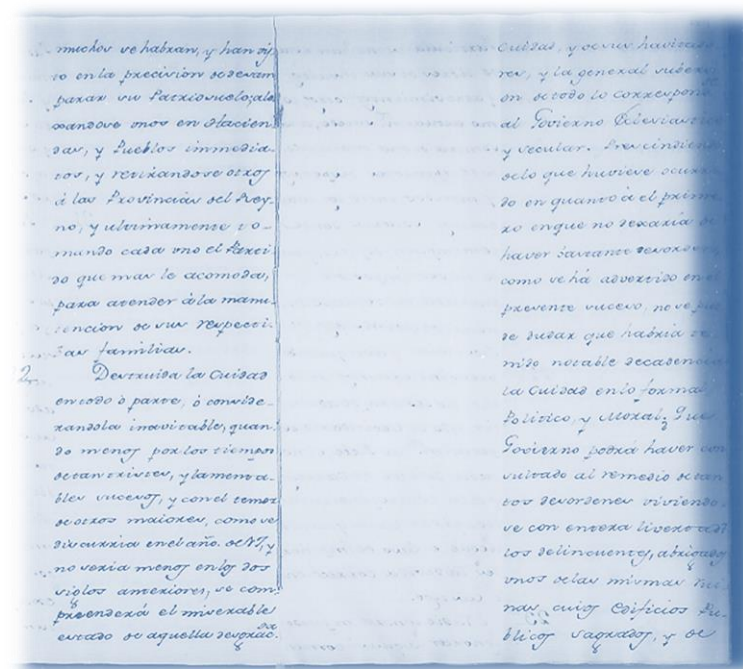 muchos se habran, y han vis
to en la precision de desam
parar su Patrio suelo, alo
xandose unos en Hacien
das, y Pueblos immedia-
tos, y retirandose otros
à las Provincias del Rey-
no, y ultimamente to-
mando cada uno el Parti
do que mas le acomoda,
para atender à la manu
tencion de sus respecti-
vas familias.
2.
Destruida la Cuidad
en todo ò parte, ò conside-
randola inavitable, quan
do menos por los tiempos
de tan tristes, y lamenta-
bles sucesos, y con el temor
de otros maiores, como se
discurria en el año de
no seria menos en los dos
siglos anteriores, se com
preenderá el miserable
estado de aquella desgrac
da
Cuidad, y de sus havitado
res, y la general
on de todo lo correspond
al Govierno Eclesiastico
y secular. Prescindiendo
de lo que huviese ocurri
do en quanto à el prime
ro en que no dexaria de
haver bastante desorden,
como se há advertido en el
presente suceso, no se pue
de dudar que habria te
nido notable decadencia
la Cuidad en lo formal,
Politico, y Moral; Que
Govierno podrá haver con
sultado al remedio de tan
tos desordenes viviendo
se con entera livertad
los delincuentes, abrigados
unos de las mismas rui
nas, cuios Edificios Pu-
blicos sagrados, y de